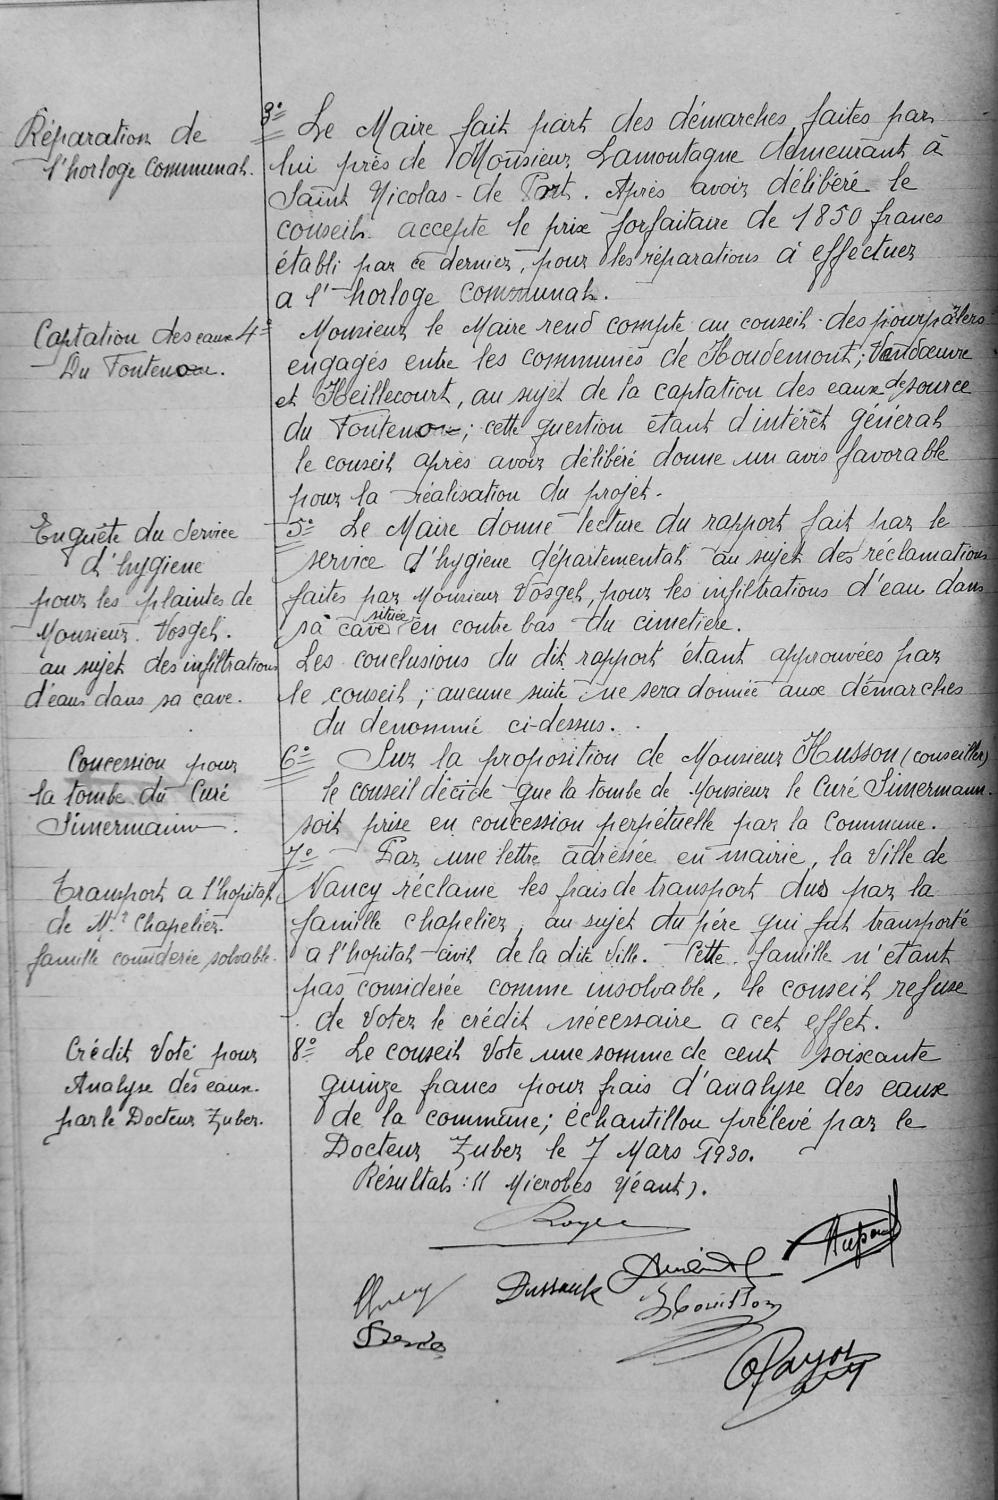 Réparation de
l'horloge communal.
3° Le Maire fait part des démarches faites par
lui près de Monsieur Lamontagne demeurant à
Saint Nicolas-de Port. Après avoir délibéré le
conseil accepte le prix forfaitaire de 1850 francs
établi par ce dernier, pour les réparations à effectuer
a l'horloge communal.
Captation des eaux
Du Fontenou.
4° Monsieur le Maire rend compte au conseil des pourpalers
engagés entre les communes de Houdemont; Vandœuvre
et Heillecourt, au sujet de la captation des eaux de source
du Fontenou; cette question étant d'intérêt général
le conseil après avoir délibéré donne un avis favorable
pour la réalisation du projet.
Enquête du Service
d'hygiene
pour les plaintes de
Monsieur. Vosgel.
au sujet des infiltrations
d'eau dans sa cave.
5° Le Maire donne lecture du rapport fait par le
service d'hygiene départemental au sujet des réclamations
faites par Monsieur Vosgel, pour les infiltrations d'eau dans
sa cave située en contre bas du cimetiere.
Les conclusions du dit rapport étant approuvées par
le conseil; aucune suite ne sera donnée aux démarches
du denommé ci-dessus.
Concession pour
la tombe du Curé
Simermann.
6° Sur la proposition de Monsieur Husson (conseiller)
le conseil décide que la tombe de Monsieur le Curé Simermann.
soit prise en concession perpétuelle par la Commune.
Transport a l'hopital
de Mr Chapelier.
famille considerée solvable.
7° Par une lettre adressée en mairie, la Ville de
Nancy réclame les frais de transport dus par la
famille chapelier, au sujet du père qui fut transporté
a l'hopital civil de la dite Ville. Cette famille n'étant
pas considerée comme insolvable, le conseil refuse
de Voter le crédit nécessaire a cet effet.
Crédit Voté pour
Analyse des eaux.
par le Docteur Zuber.
8° Le conseil Vote une somme de cent soixante
quinze francs pour frais d'analyse des eaux
de la commune; échantillon prélevé par le
Docteur Zuber le 7 Mars 1930.
Résultats: (( Microbes Néant).
Royer
Dussaulx
Houillon
Payon